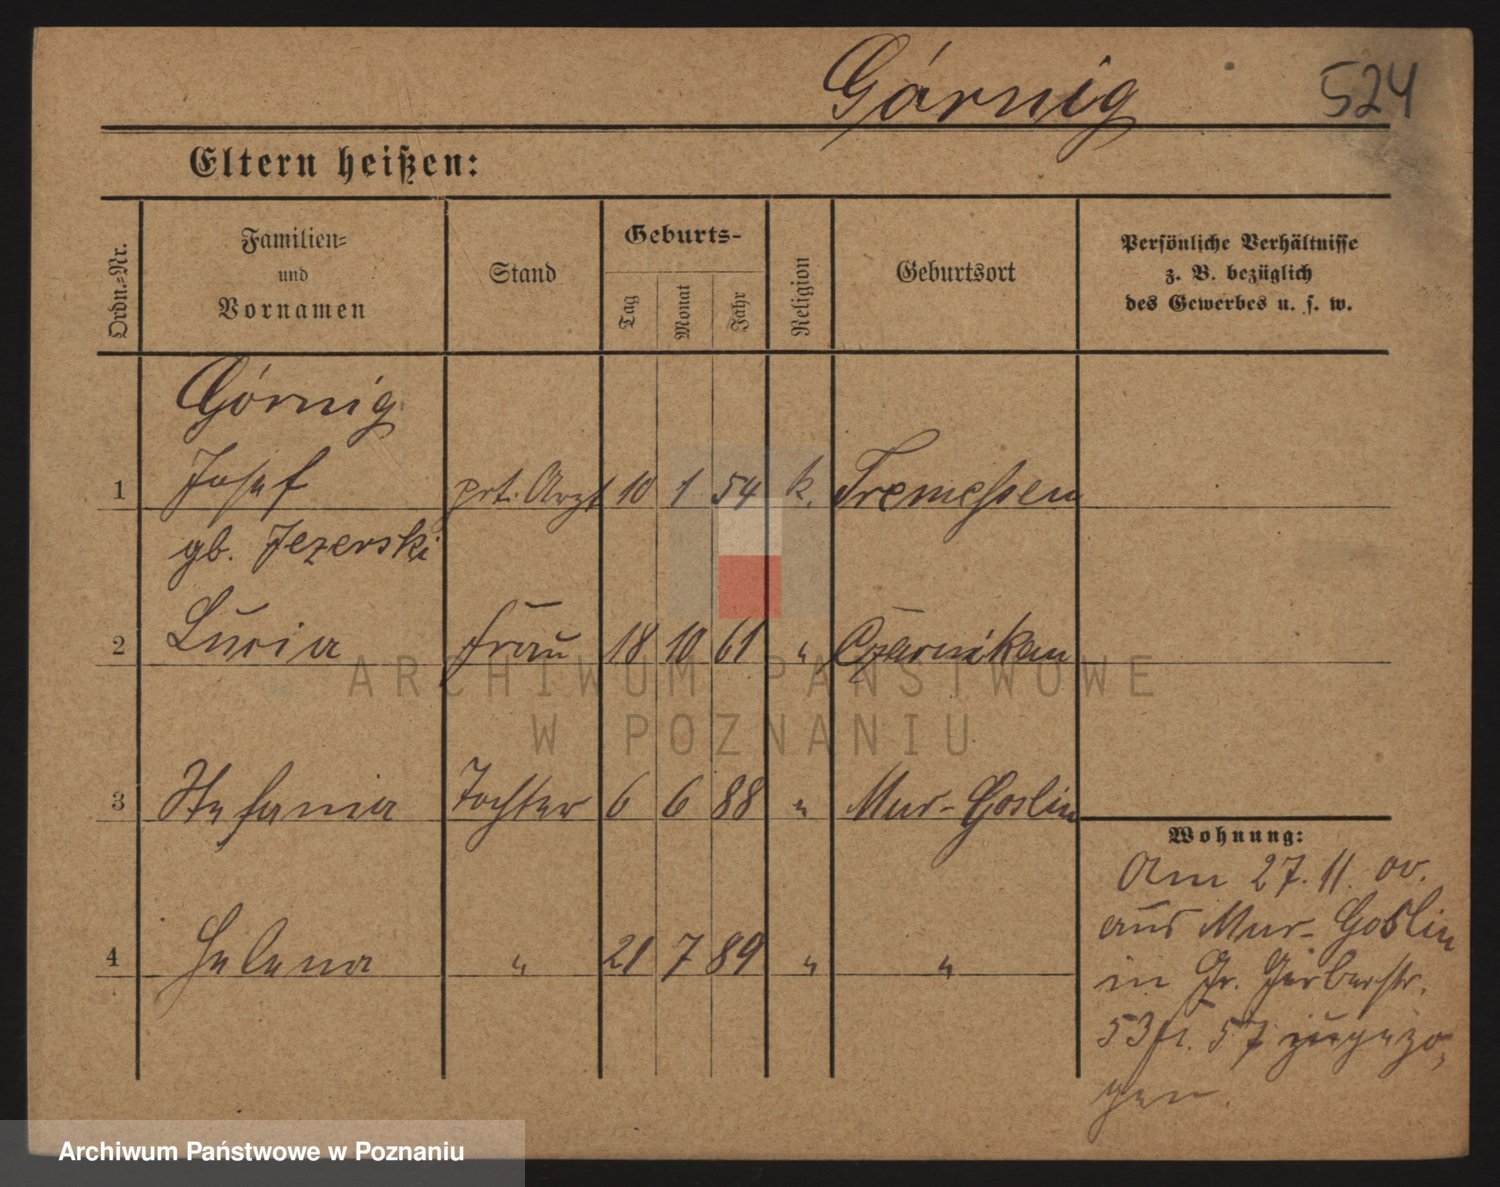 Górnig 524
Eltern heißen:
Ordn.-Nr.
Familien-
und
Vornamen
Stand
Geburts-
Tag
Monat
Jahr
Religion
Geburtsort
Persönliche Verhältnisse
z. B. bezüglich
des Gewerbes u. s. w.
Górnig
1 Josef prt. Arzt 10 1 54 k. Tremessen
gb. Jezerski
2 Lucia Frau 18 10 61 " Czarnikau
ARCHIWUM PAŃSTWOWE
W POZNANIU
3 Stefania Tochter 6 6 88 " Mur-Goslin
Wohnung:
Am 27. 11. 00.
aus Mur-Goslin
4 Helena " 21 7 89 " "
in Gr. Gerberstr.
53 57 zugezo-
gen.
Archiwum Państwowe w Poznaniu